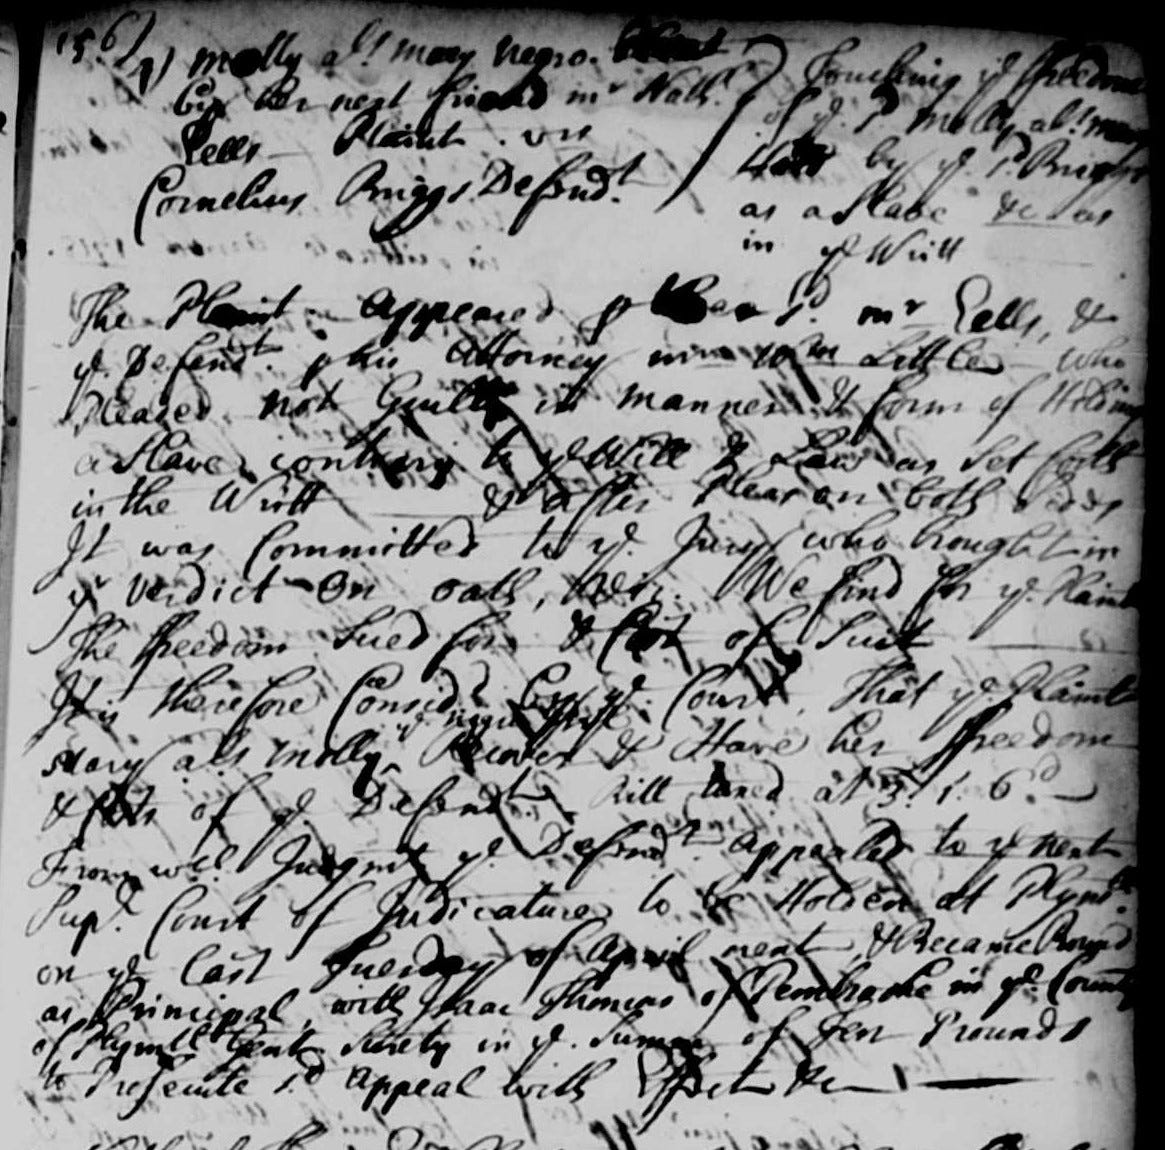 156/
1) Molly als. Mary Negro
by her next friend mr Nathl.
Eells Plaint. vs
Cornelius Briggs Defendt.
Touching ye freedom
of ye. sd. Molly als. Mary
Held by ye. sd Briggs
as a Slave &c as
in ye Writt
The Plaint appeared p her sd. mr Eells, &
ye. Defendt. p his Attorney mr Wm Little who
Pleaded not Guilty in manner & form of Holding
a Slave contrary to ye Will & Law as Set forth
in the Writt & after Pleas on both sides
It was Committed to ye. Jury who brought in
yr Verdict on oath, viz. We find for ye. Plaint
The freedom sued for & Cost of Suit
It is therefore Considd. by ye. Court, That ye Plaint
Mary als Molly ye negro Recover & Have her freedom
& Costs of ye Defendt. Bill taxed at 3. 1. 6d
From wch. Judgmt ye. Defendt. appealed to ye next
Supr. Court of Judicature to be Holden at Plymo.
on ye Last Tuesday of April next, & Became Bound
as Principal, with Isaac Thomas of Pembrooke in ye. County
of Plymth Gent. Surety in ye. Summ of Ten Pounds
to Prosecute sd appeal with Effect &c